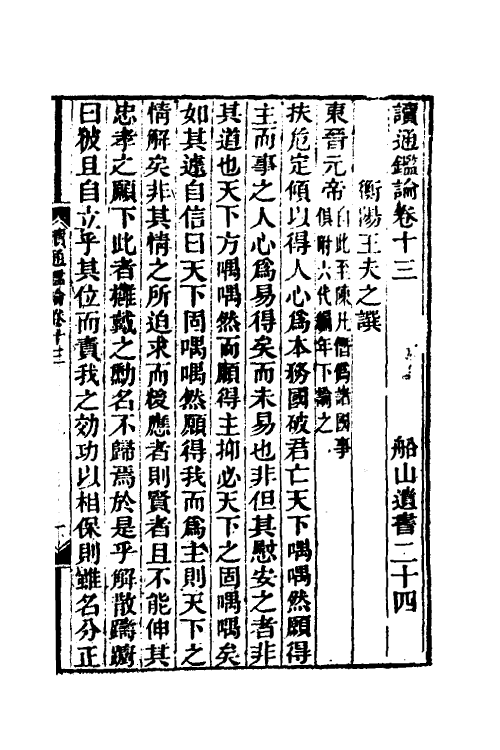 讀通鑑論卷十三 船山遺書二十四
衡陽王夫之譔
東晉元帝 自此至陳凡僭僞諸國事俱附六代編年下論之
扶危定傾以得人心爲本務國破君亡天下喁喁然願得
主而事之人心爲易得矣而未易也非但其慰安之者非
其道也天下方喁喁然而願得主抑必天下之固喁喁矣
如其遽自信曰天下固喁喁然願得我而爲主則天下之
情解矣非其情之所迫求而後應者則賢者且不能伸其
忠孝之願下此者擁戴之勳名不歸焉於是乎解散躊躇
曰彼且自立乎其位而責我之効功以相保則雖名分正
讀通鑑論卷十三 一